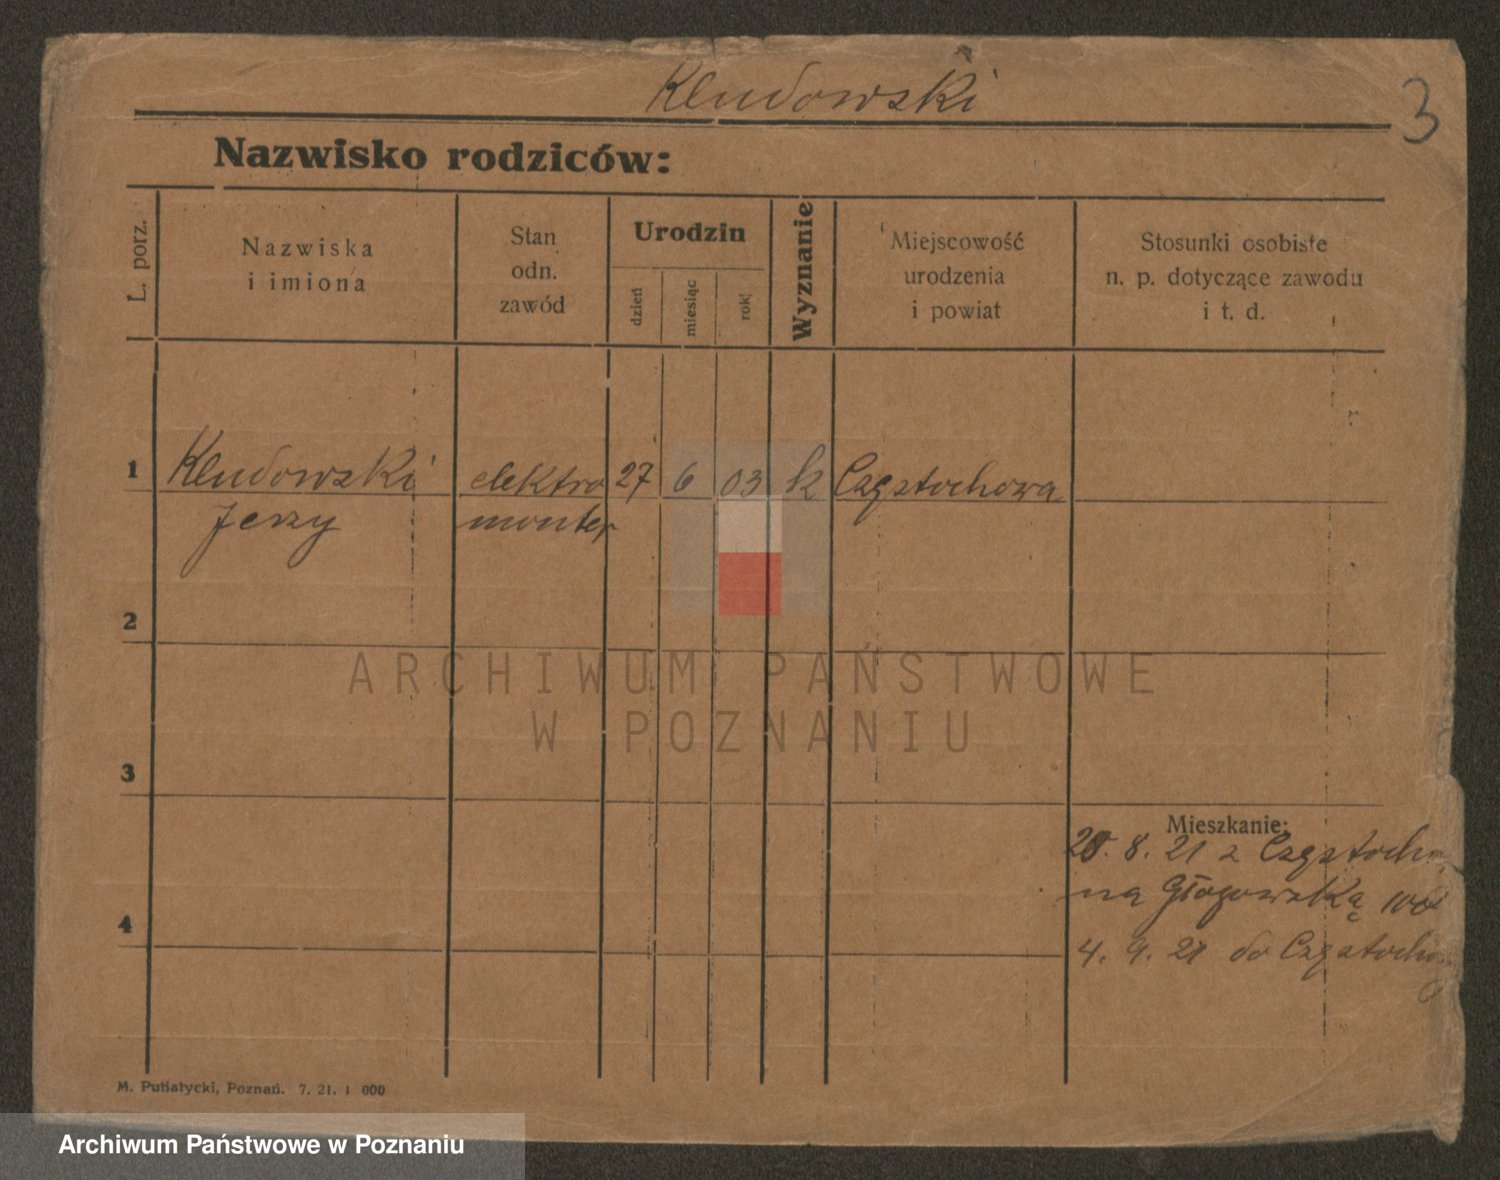 Kludowski
3
Nazwisko rodziców:
L. porz.
Nazwiska
i imiona
Stan
odn.
zawód
Urodzin
dzień
miesiąc
rok
Wyznanie
Miejscowość
urodzenia
i powiat
Stosunki osobiste
n. p. dotyczące zawodu
i t. d.
1
Kludowski elektro 27 6 03 k Częstochowa
Jerzy monter
2
ARCHIWUM PAŃSTWOWE
W POZNANIU
3
Mieszkanie:
8. 21 z Częstocho
na Głogowską
4
4. 9. 21 do Częstocho
M. Putiatycki, Poznań. 7. 21. 1 000
Archiwum Państwowe w Poznaniu